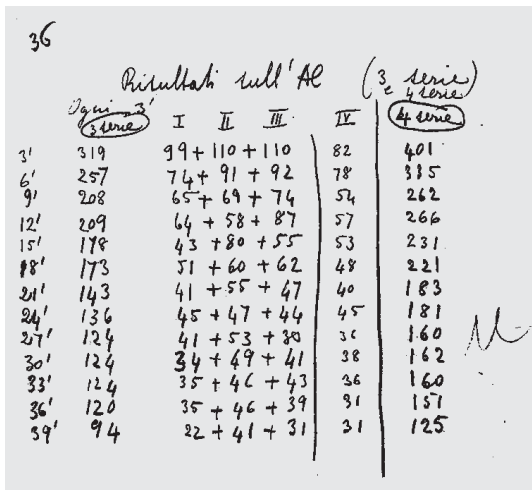 36
Risultati sull' Al (3 serie)
e 4 serie
Ogni 3'
3 serie I II III IV 4 serie
3' 319 99 + 110 + 110 82 401
6' 257 74 + 91 + 92 78 335
9' 208 65 + 69 + 74 54 262
12' 209 64 + 58 + 87 57 266
15' 178 43 + 80 + 55 53 231
18' 173 51 + 60 + 62 48 221
21' 143 41 + 55 + 47 40 183
24' 136 45 + 47 + 44 45 181
27' 124 41 + 53 + 30 36 160
30' 124 34 + 49 + 41 38 162
33' 124 35 + 46 + 43 36 160
36' 120 35 + 46 + 39 31 151
39' 94 22 + 41 + 31 31 125